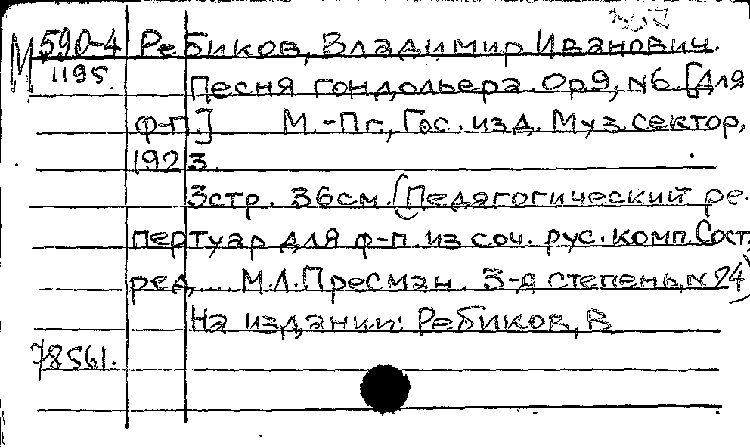 М 590-4 Ребиков, Владимир Иванович.
1195 Песня гондольера. Op9, N6. [Для
ф-п.] М.-Пг., Гос. изд. Муз. сектор,
1923.
3стр. 36см. (Педагогический ре-
пертуар для ф-п. из соч. рус. комп. Сост.
ред.... М.Л. Пресман. 3-я степень, N 24)
На издании: Ребиков, В
78561.